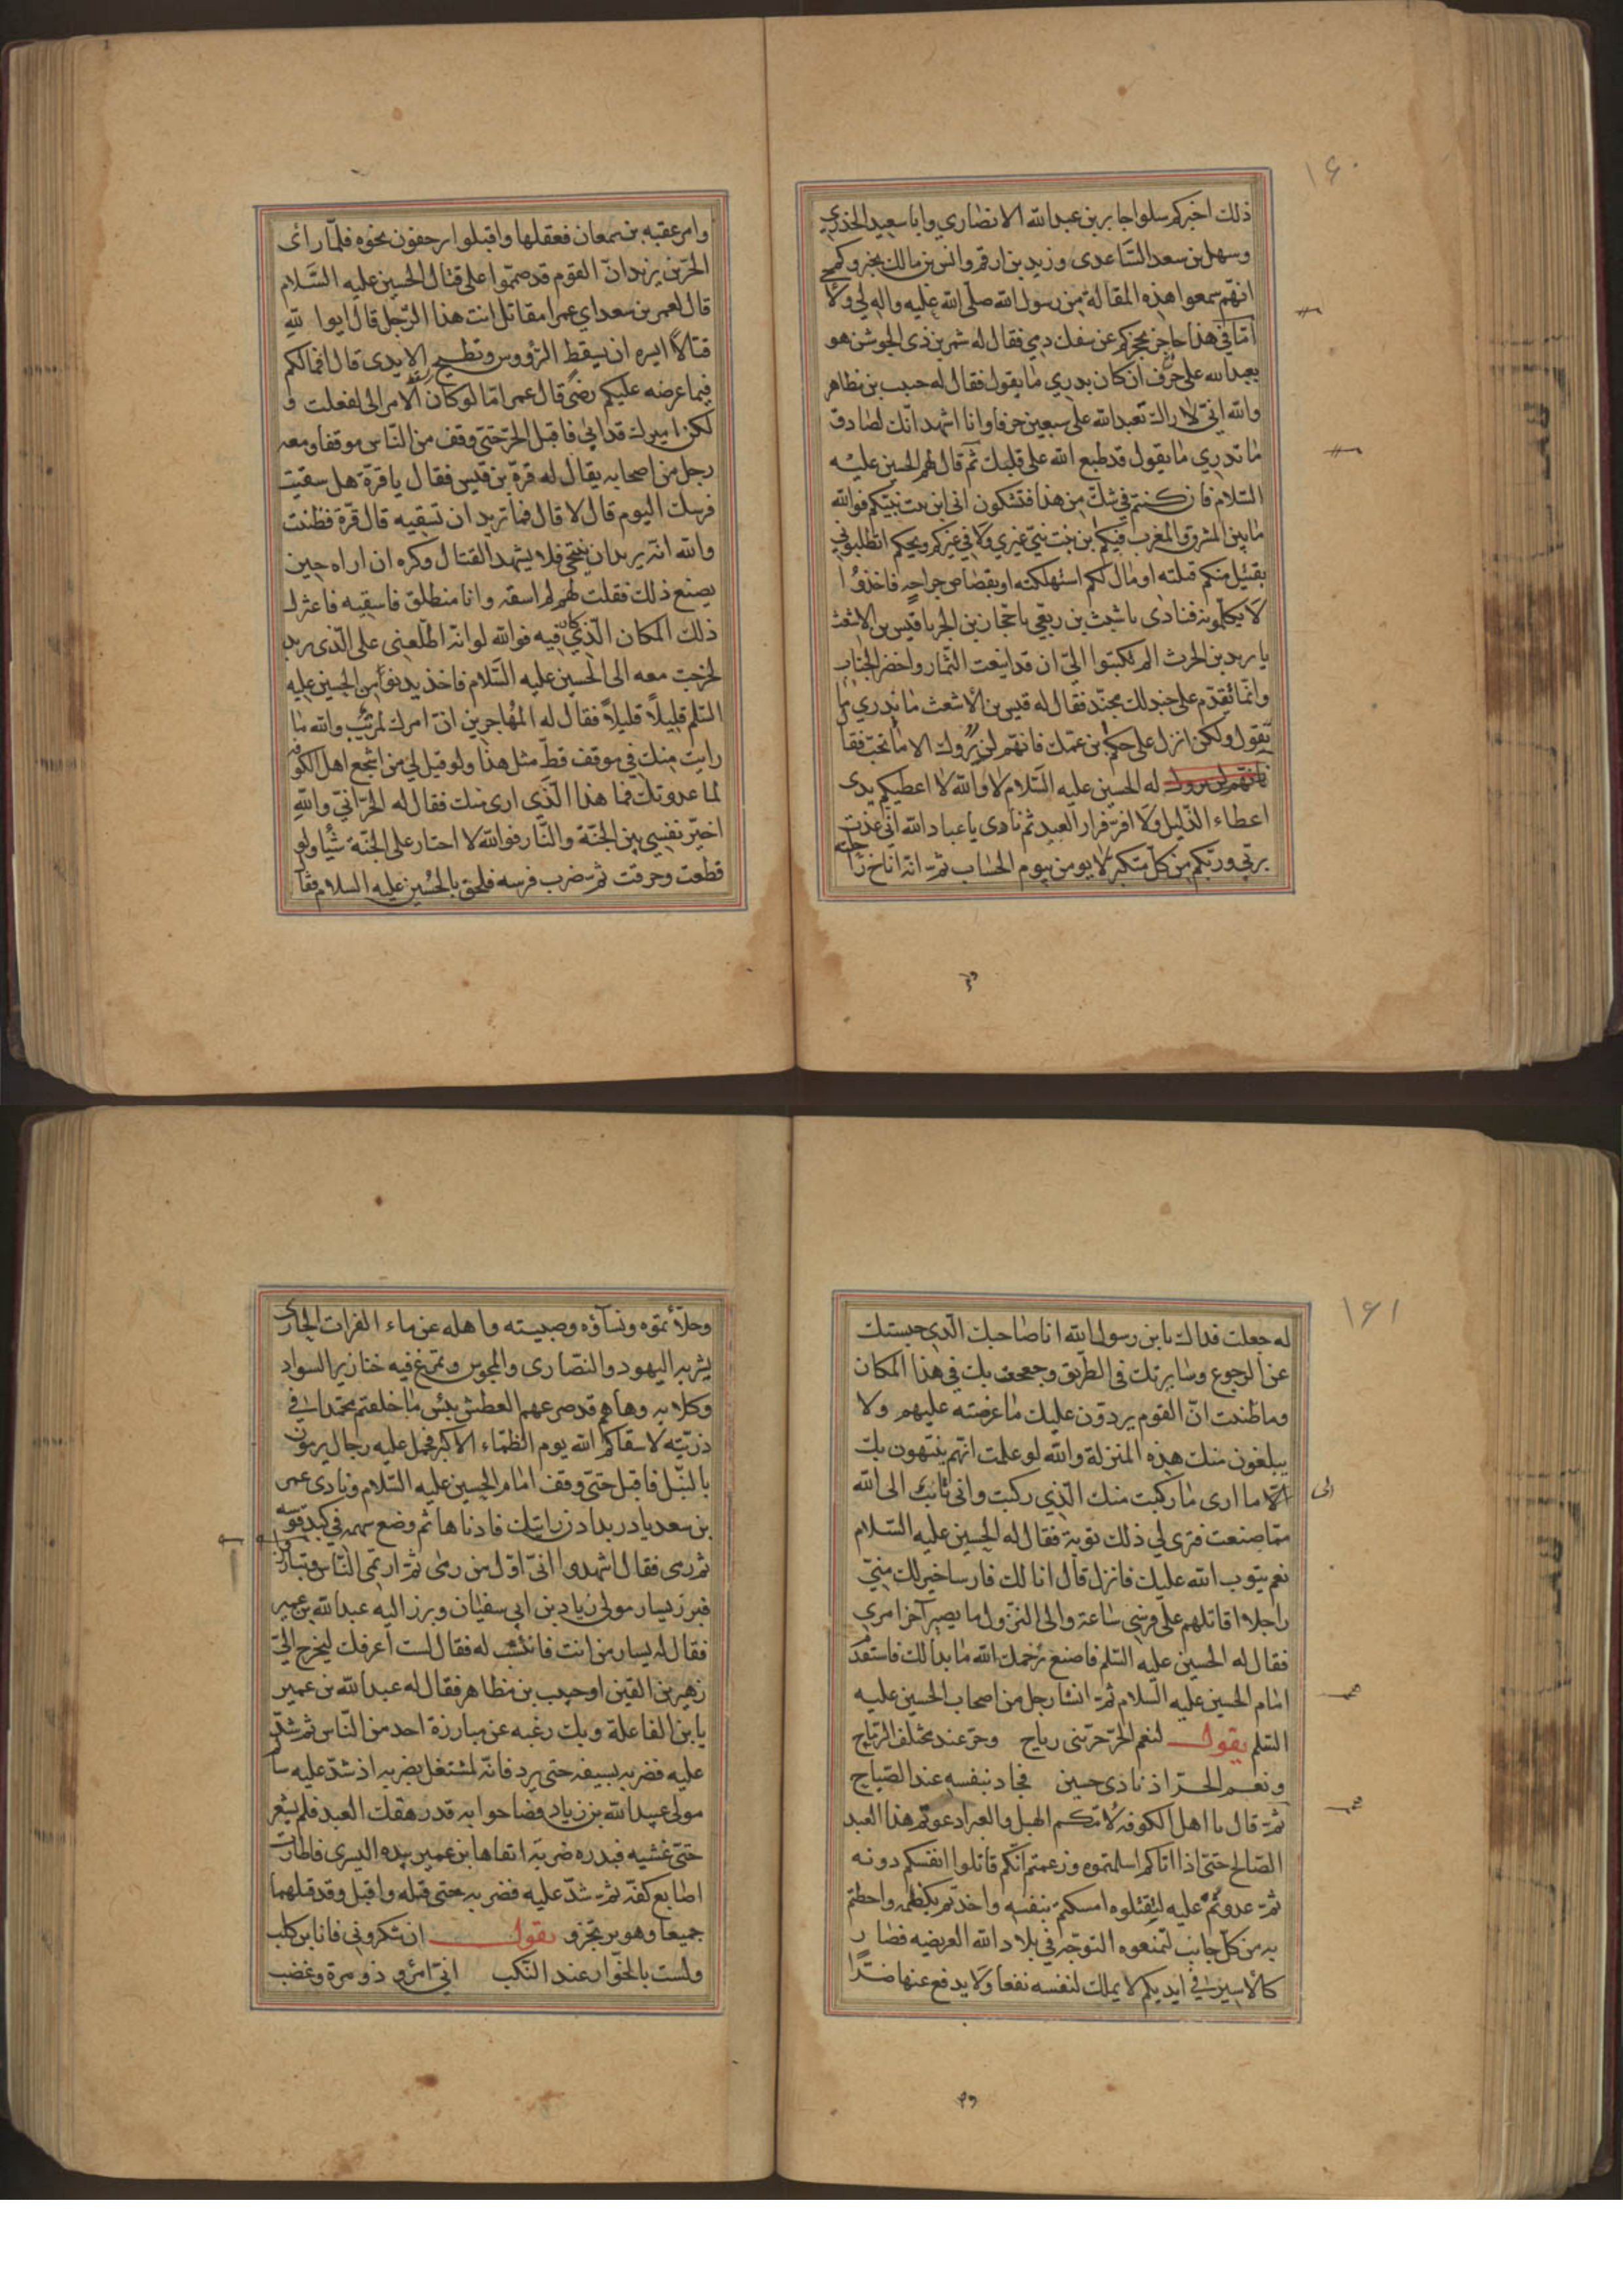 ۱۶۰
ذلك اخبركم سلوا جابر بن عبد الله الانصاري وابا سعيد الخدري
وسهل بن سعد الساعدى وزيد بن ارقم وانس بن مالك يخبروكم
انهّم سمعوا هذه المقالة من رسول الله صلّى الله عليه واله لي ولا
امّا في هذا حاجز يحجزكم عن سفك دمي فقال له شمر بن ذى الجوشن هو
يعبد الله على حرف ان كان يدري ما يقول فقال له حبيب بن مظاهر
والله انيّ لاراك تعبد الله على سبعين حرفا وانا اشهد انّك لصادق
ما تدري ما يقول قد طبع الله على قلبك ثم قال لهم الحسين عليه
السّلام فان كنتم في شك من هذا فتشكون انى ابن بنت نبيّكم فوالله
ما بين المشرق المغرب ابن بنت نبيّ غيري فيكم ولا في غيركم ويحكم اتطلبوني
بقتيل منكم قتلته او مال لكم استهلكته او بقصاص جراحة فاخذوا
لا يكلمونه فنادى يا شبث بن ربعي يا حجّار بن الجر يا قيس بن الاشعث
يا يزيد بن الحرث الم تكتبوا اليّ ان قد اينعت الثّمار واخضر الجناب
وانّما تقدم على جند لك مجنّد فقال له قيس بن الاشعث ما ندري ما
تقول ولكن انزل على حكم بن عمّك فانهم لن يروك الا ما تحبّ فقا
له الحسين عليه السّلام لا والله لا اعطيكم يدى
اعطاء الذّليل ولا افرّ فرار العبيد ثم نادى يا عباد الله انّي عذت
بربّي وربّكم من كلّ متكبر لا يومن بيوم الحساب ثمّ انّه اناخ راحلته
وامر عقبة بن سمعان فعقلها واقبلوا يزحفون نحوه فلمّا راى
الحرّ بن يزيد انّ القوم قد صمّموا على قتال الحسين عليه السّلام
قال لعمر بن سعد اي عمر امقاتل انت هذا الرّجل قال ايوا للّه
قتالا ايسره ان يسقط الرّؤوس وتطيح الايدى قال افمالكم
فيما عرضه عليكم رضىً قال عمر امّا لو كان الامر الى لفعلت و
لكن اميرك قد ابى فاقبل الحرّ حتّى وقف من النّاس موقفا ومعه
رجل من اصحابه يقال له قرّة بن قيس فقال يا قرّة هل سقيت
فرسك اليوم قال لا قال فما تريد ان تسقيه قال قرّة فظننت
والله انّه يريدان يتنحى فلا يشهد القتال وكره ان اراه حين
يصنع ذلك فقلت لهم لم اسقه وانا منطلق فاسقيه فاعتزل
ذلك المكان الّذي كان فيه فوالله لو انّه اطّلعنى على الّذى يريد
لخرجت معه الى الحسين عليه السّلام فاخذ يدنو من الحسين عليه
السّلم قليلاً قليلاً فقال له المهاجر بن انّ امرك لمريب والله ما
رايت منك في موقف قطّ مثل هذا ولو قيل لي من اشجع اهل الكوفة
لما عدوتك فما هذا الّذي ارى منك فقال له الحرّ انيّ والله
اخيّر نفسي بين الجنّة والنّار فوالله لا احتار على الجنّة شيأ ولو
قطعت وحرقت ثمّ ضرب فرسه فلحق بالحُسين عليه السلام فقا
۱۶۱
له جعلت فداك يا بن رسول الله انا صاحبك الّذي حبستك
عن الرجوع وسايرتك فى الطريق وجعجعت بك في هذا المكان
وما ظننت انّ القوم يردّون عليك ما عرضته عليهم ولا
يبلغون منك هذه المنزلة والله لو علمت انّهم ينتهون بك
الى ما ارى ما ركبت منك الّذي ركبت وانى تائب الى الله
ممّا صنعت فترى لي ذلك توبة فقال له الحسين عليه السّلام
نعم يتوب الله عليك فانزل قال انا لك فارسا خير لك منيّ
راجلا اقاتلهم على فرسي ساعة والى النّزول ما يصير آخر امرى
فقال له الحسين عليه السّلم فاصنع يرحمك الله ما بدا لك فاستقدم
امام الحسين عليه السّلام ثمّ انشا رجل من اصحاب الحسين عليه
السّلم يقول لنعم الحرّ حرّ بنى رياح وحرّ عند مختلف الرّماح
ونعم الحرّ اذ نادى حسين فجاد بنفسه عند الصّباح
ثمّ قال يا اهل الكوفه لامّكم الهبل والعبر ادعوتم هذا العبد
الصّالح حتىّ اذا اتاكم اسلمتموه وزعمتم انّكم قاتلوا انفسكم دونه
ثمّ عدوتم عليه لتقتلوه امسكتم بنفسه واخذتم بكظمه واحطتم
به من كلّ جانب لتمنعوه التوجّه في بلاد الله العريضه فصار
كالاسير في ايديكم لا يملك لنفسه نفعا ولا يدفع عنها ضرّا
وحلأتموه ونسآؤه وصبيته واهله عن ماء الفرات الجارى
يشربه اليهود والنّصارى والمجوس وتمرغ فيه خنازير السواد
وكلابه وهاهم قد صرعهم العطش بئس ما خلفتم محمّدا في
ذرّيّته لا سقاكم الله يوم الظّماء الاكبر فحمل عليه رجال يرمون
بالنبّل فاقبل حتىّ وقف امام الحسين عليه السّلام ونادى عمر
بن سعد يا دريد ادن رايتك فادناها ثم وضع سهمه في كبد قوسه
ثم رمى فقال اشهدوا انّى اوّل من رمى ثمّ ارتمى النّاس وتبارزوا
فبرز يسار مولى زياد بن ابي سفيان وبرز اليه عبد الله بن عمير
فقال له يسار من انت فانتسب له فقال لست اعرفك ليخرج اليّ
زهير بن القين او حبيب بن مظاهر فقال له عبد الله بن عمير
يا بن الفاعلة وبك رغبه عن مبارزة احد من النّاس ثم شدّ
عليه فضربه بسيفه حتى برد فانّه لمشتغل بضربه اذ شدّ عليه سالم
مولى عبيد الله بن زياد فصاحوا به قد رهقك العبد فلم يشعر
حتىّ غشيه فبدره ضربة اتقاها ابن عمير بيده اليسرى فاطارت
اصابع كفّه ثمّ شدّ عليه فضربه حتى قتله واقبل وقد قتلهما
جميعا وهو يرتجز و يقول ان تنكروني فانا ابن كلب
ولست بالخوّار عند النّكب انيّ امرؤ ذو مرة وغضب